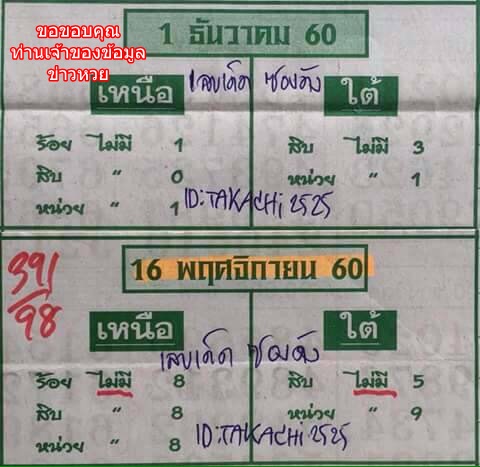 ขอขอบคุณ
ท่านเจ้าของข้อมูล
ข่าวหวย
1 ธันวาคม 60
เลขเด็ด ซองดัง
เหนือ ใต้
ร้อย ไม่มี 1 สิบ ไม่มี 3
สิบ " 0 หน่วย " 1
หน่วย " 1
ID:TAKACHi2525
391
98
16 พฤศจิกายน 60
เหนือ ใต้
เลขเด็ด ซองดัง
ร้อย ไม่มี 8 สิบ ไม่มี 5
สิบ " 8 หน่วย " 9
หน่วย " 8
ID:TAKACHi2525